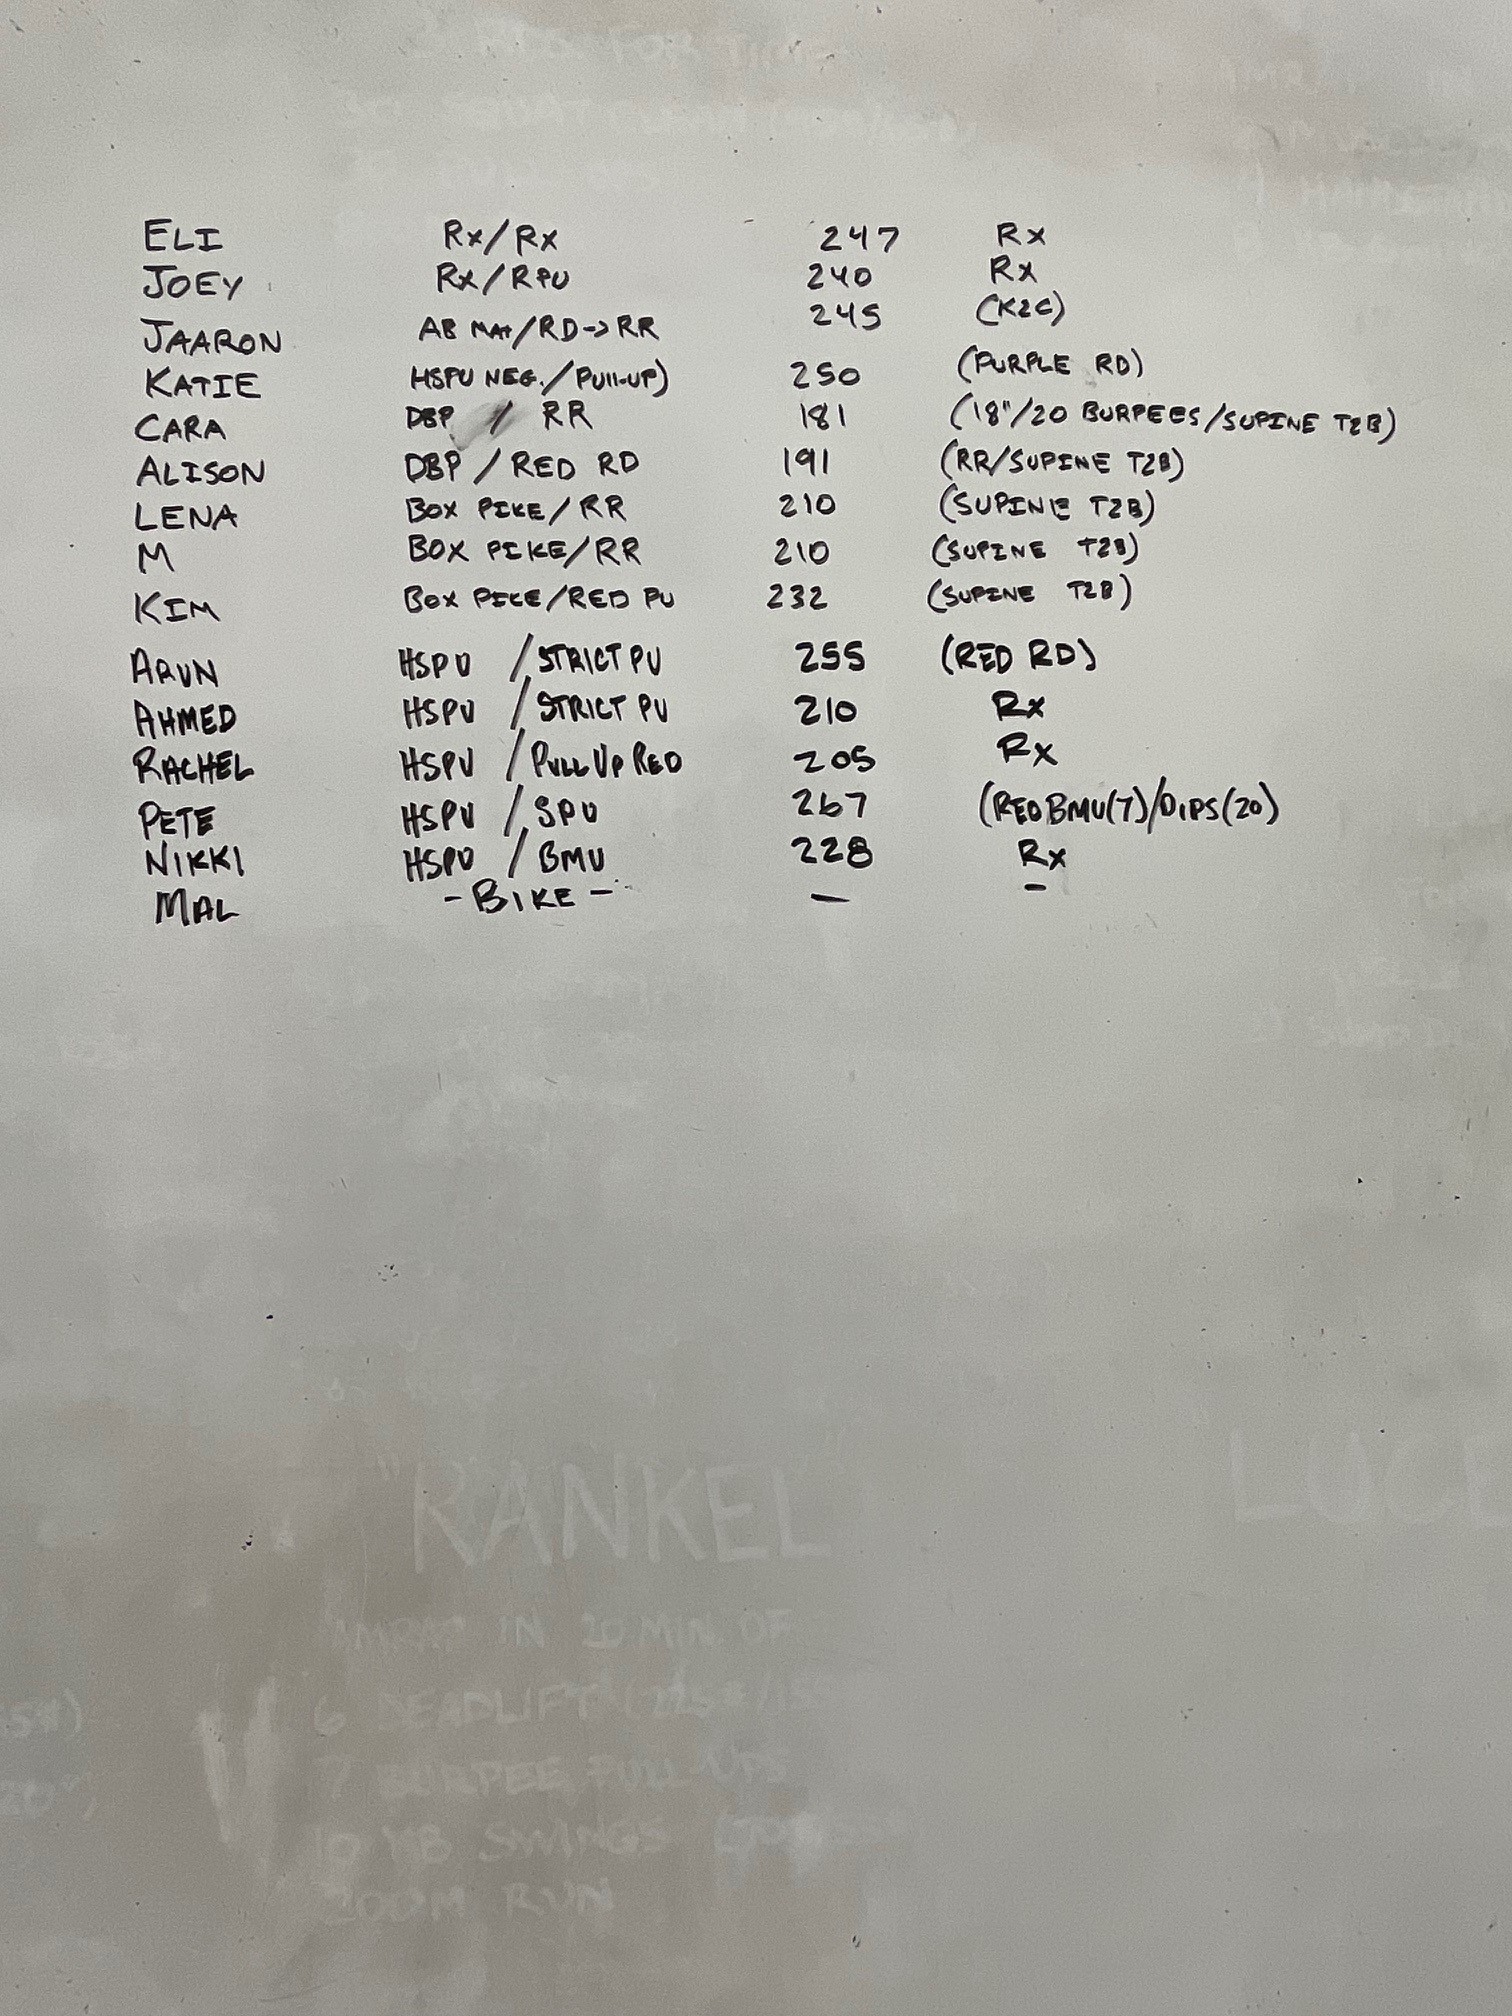 FOR TIME
ELI Rx/Rx 247 Rx
JOEY Rx/RPU 240 Rx
JAARON AB MAT/RD->RR 245 (K2C)
KATIE HSPU NEG./PUll-UP) 250 (PURPLE RD)
CARA DBP / RR 181 (18"/20 BURPEES/SUPINE T2B)
ALISON DBP / RED RD 191 (RR/SUPINE T2B)
LENA BOX PIKE/RR 210 (SUPINE T2B)
M BOX PIKE/RR 210 (SUPINE T2B)
KIM BOX PIKE/RED PU 232 (SUPINE T2B)
ARUN HSPU /STRICT PU 255 (RED RD)
AHMED HSPU /STRICT PU 210 Rx
RACHEL HSPU /PULL UP RED 205 Rx
PETE HSPU /SPU 267 (RED BMU(7)/DIPS(20)
NIKKI HSPU /BMU 228 Rx
MAL -BIKE- — -
"RANKEL"
AMRAP IN 20 MIN OF
6 DEADLIFT (225#/155
7 BURPEE PULL UPS
10 KB SWINGS
200M RUN